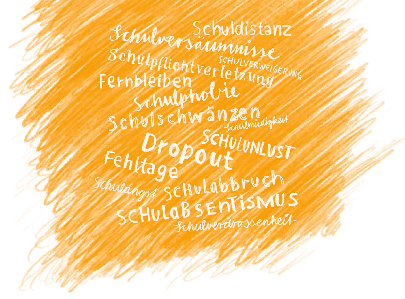 Schuldistanz
Schulversäumnisse
SCHULVERWEIGERUNG
Schulpflichtverletzung
Fernbleiben
Schulphobie
Schulschwänzen
Schulmüdigkeit
SCHULUNLUST
Dropout
Fehltage
Schulangst
SCHULABBRUCH
SCHULABSENTISMUS
Schulverdrossenheit